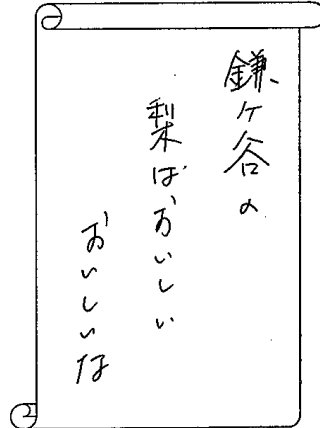 鎌ケ谷の
梨はおいしい
おいしいな